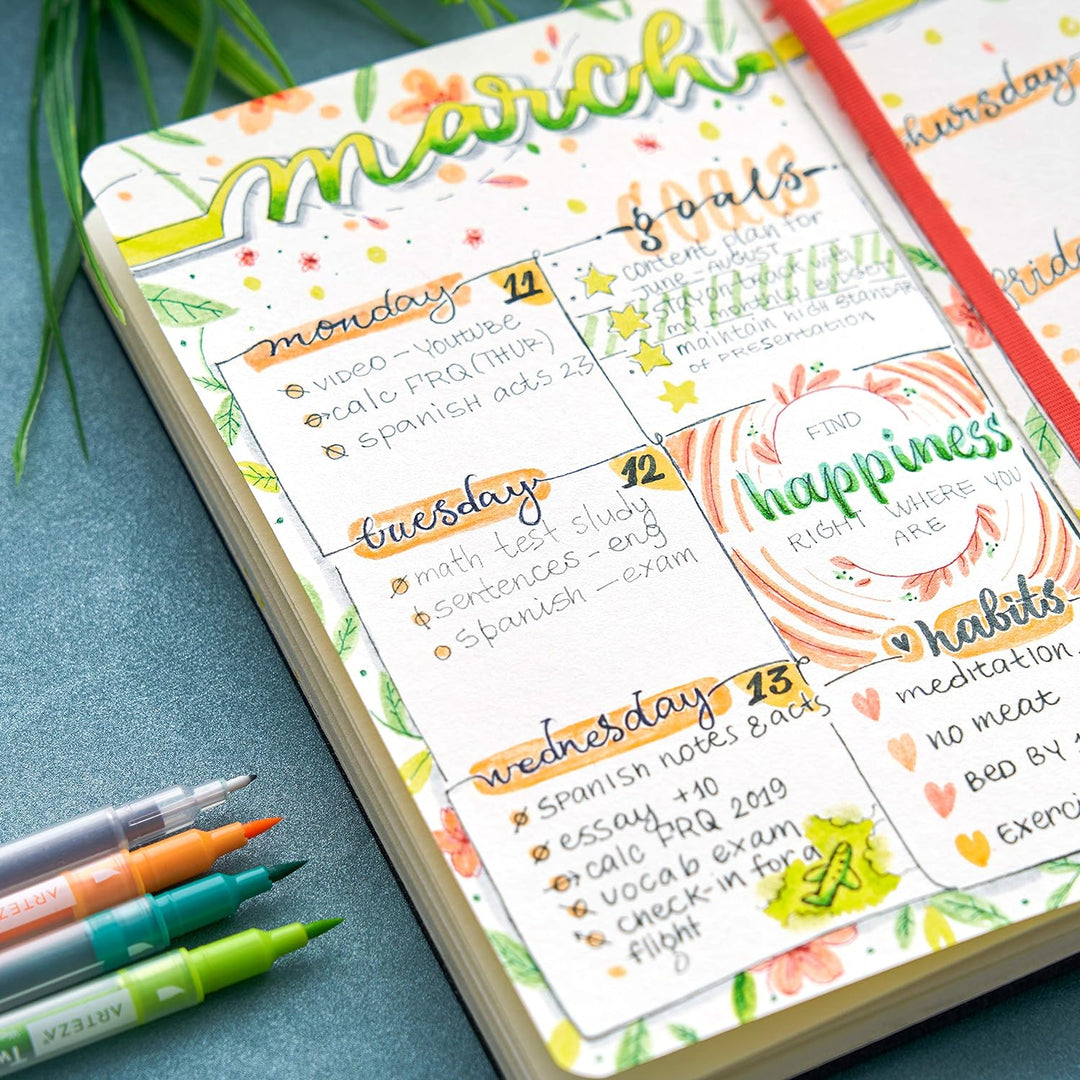 march
monday 11
video - Youtube
calc FRQ (THUR)
spanish acts 2,3
tuesday 12
math test study
sentences - eng
spanish - exam
wednesday 13
spanish notes & acts
essay +10
calc FRQ 2019
vocab exam
check-in for a
flight
goals
content plan for
June - August
stay on track with
my monthly budget
maintain high standar
of presentation
FIND
happiness
RIGHT WHERE YOU
ARE
habits
meditation
no meat
BED BY
exerci
thursday
frida
ARTEZA
ARTEZA